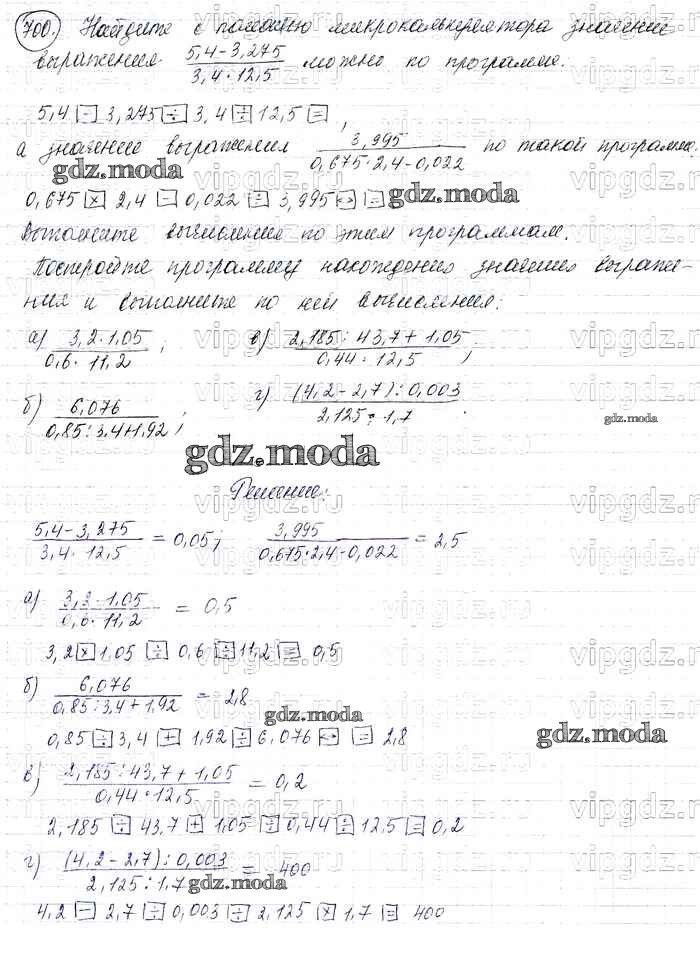 700. Найдите с помощью микрокалькулятора значение
выражения (5,4-3,275)/(3,4·12,5) можно по программе.
5,4 [-] 3,275 [÷] 3,4 [÷] 12,5 [=],
а значение выражения 3,995/(0,675·2,4-0,022) по такой программе.
gdz.moda
0,675 [×] 2,4 [-] 0,022 [÷] 3,995 [↔] [=]
gdz.moda
Выполните вычисления по этим программам.
Постройте программу нахождения значения выраже-
ния и выполните по ней вычисления:
а) (3,2·1,05)/(0,6·11,2); в) (2,185:43,7+1,05)/(0,44·12,5);
б) 6,076/(0,85:3,4+1,92); г) ((4,2-2,7):0,003)/(2,125:1,7).
gdz.moda
gdz.moda
Решение:
(5,4-3,275)/(3,4·12,5) = 0,05; 3,995/(0,675·2,4-0,022) = 2,5
а) (3,2·1,05)/(0,6·11,2) = 0,5
3,2 [×] 1.05 [÷] 0,6 [÷] 11,2 [=] 0,5
б) 6,076/(0,85:3,4+1,92) = 2,8
gdz.moda
0,85 [÷] 3,4 [+] 1,92 [÷] 6,076 [↔] [=] 2,8
gdz.moda
в) (2,185:43,7+1,05)/(0,44·12,5) = 0,2
2,185 [÷] 43,7 [+] 1,05 [÷] 0,44 [÷] 12,5 [=] 0,2
г) ((4,2-2,7):0,003)/(2,125:1,7) = 400
gdz.moda
4,2 [-] 2,7 [÷] 0,003 [÷] 2,125 [×] 1,7 [=] 400
vipgdz.ru